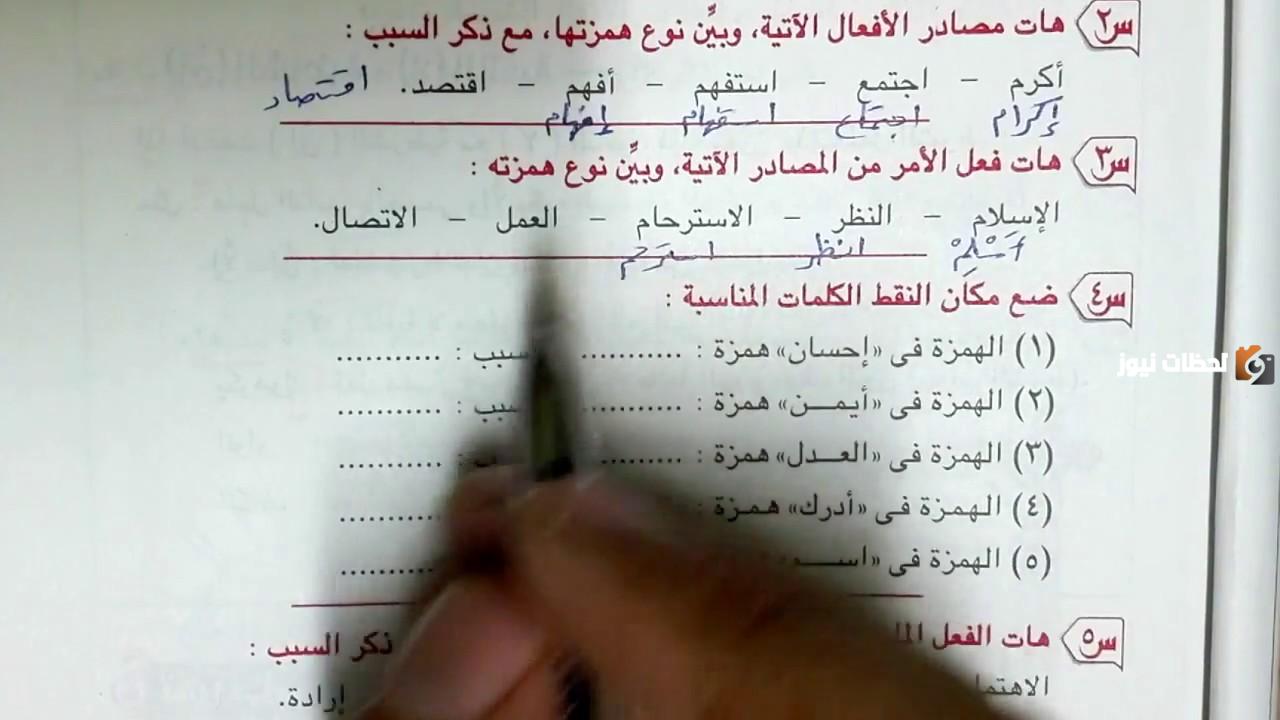 س٢ هات مصادر الأفعال الآتية، وبيِّن نوع همزتها، مع ذكر السبب :
أكرم – اجتمع – استفهم – أفهم – اقتصد. اقتصاد
إكرام اجتماع استفهام إفهام
س٣ هات فعل الأمر من المصادر الآتية، وبيِّن نوع همزته :
الإسلام – النظر – الاسترحام – العمل – الاتصال.
أَسْلِمْ انظر استرحم
س٤ ضع مكان النقط الكلمات المناسبة :
(١) الهمزة فى «إحسان» همزة : ........... سبب : ...........
(٢) الهمزة فى «أيمـــن» همزة : ........... سبب : ...........
(٣) الهمزة فى «العــدل» همزة : ........... : ...........
(٤) الهمزة فى «أدرك» همزة : ...........
(٥) الهمزة فى ...........
س٥ هات الفعل ذكر السبب :
إرادة.
لحظات نيوز